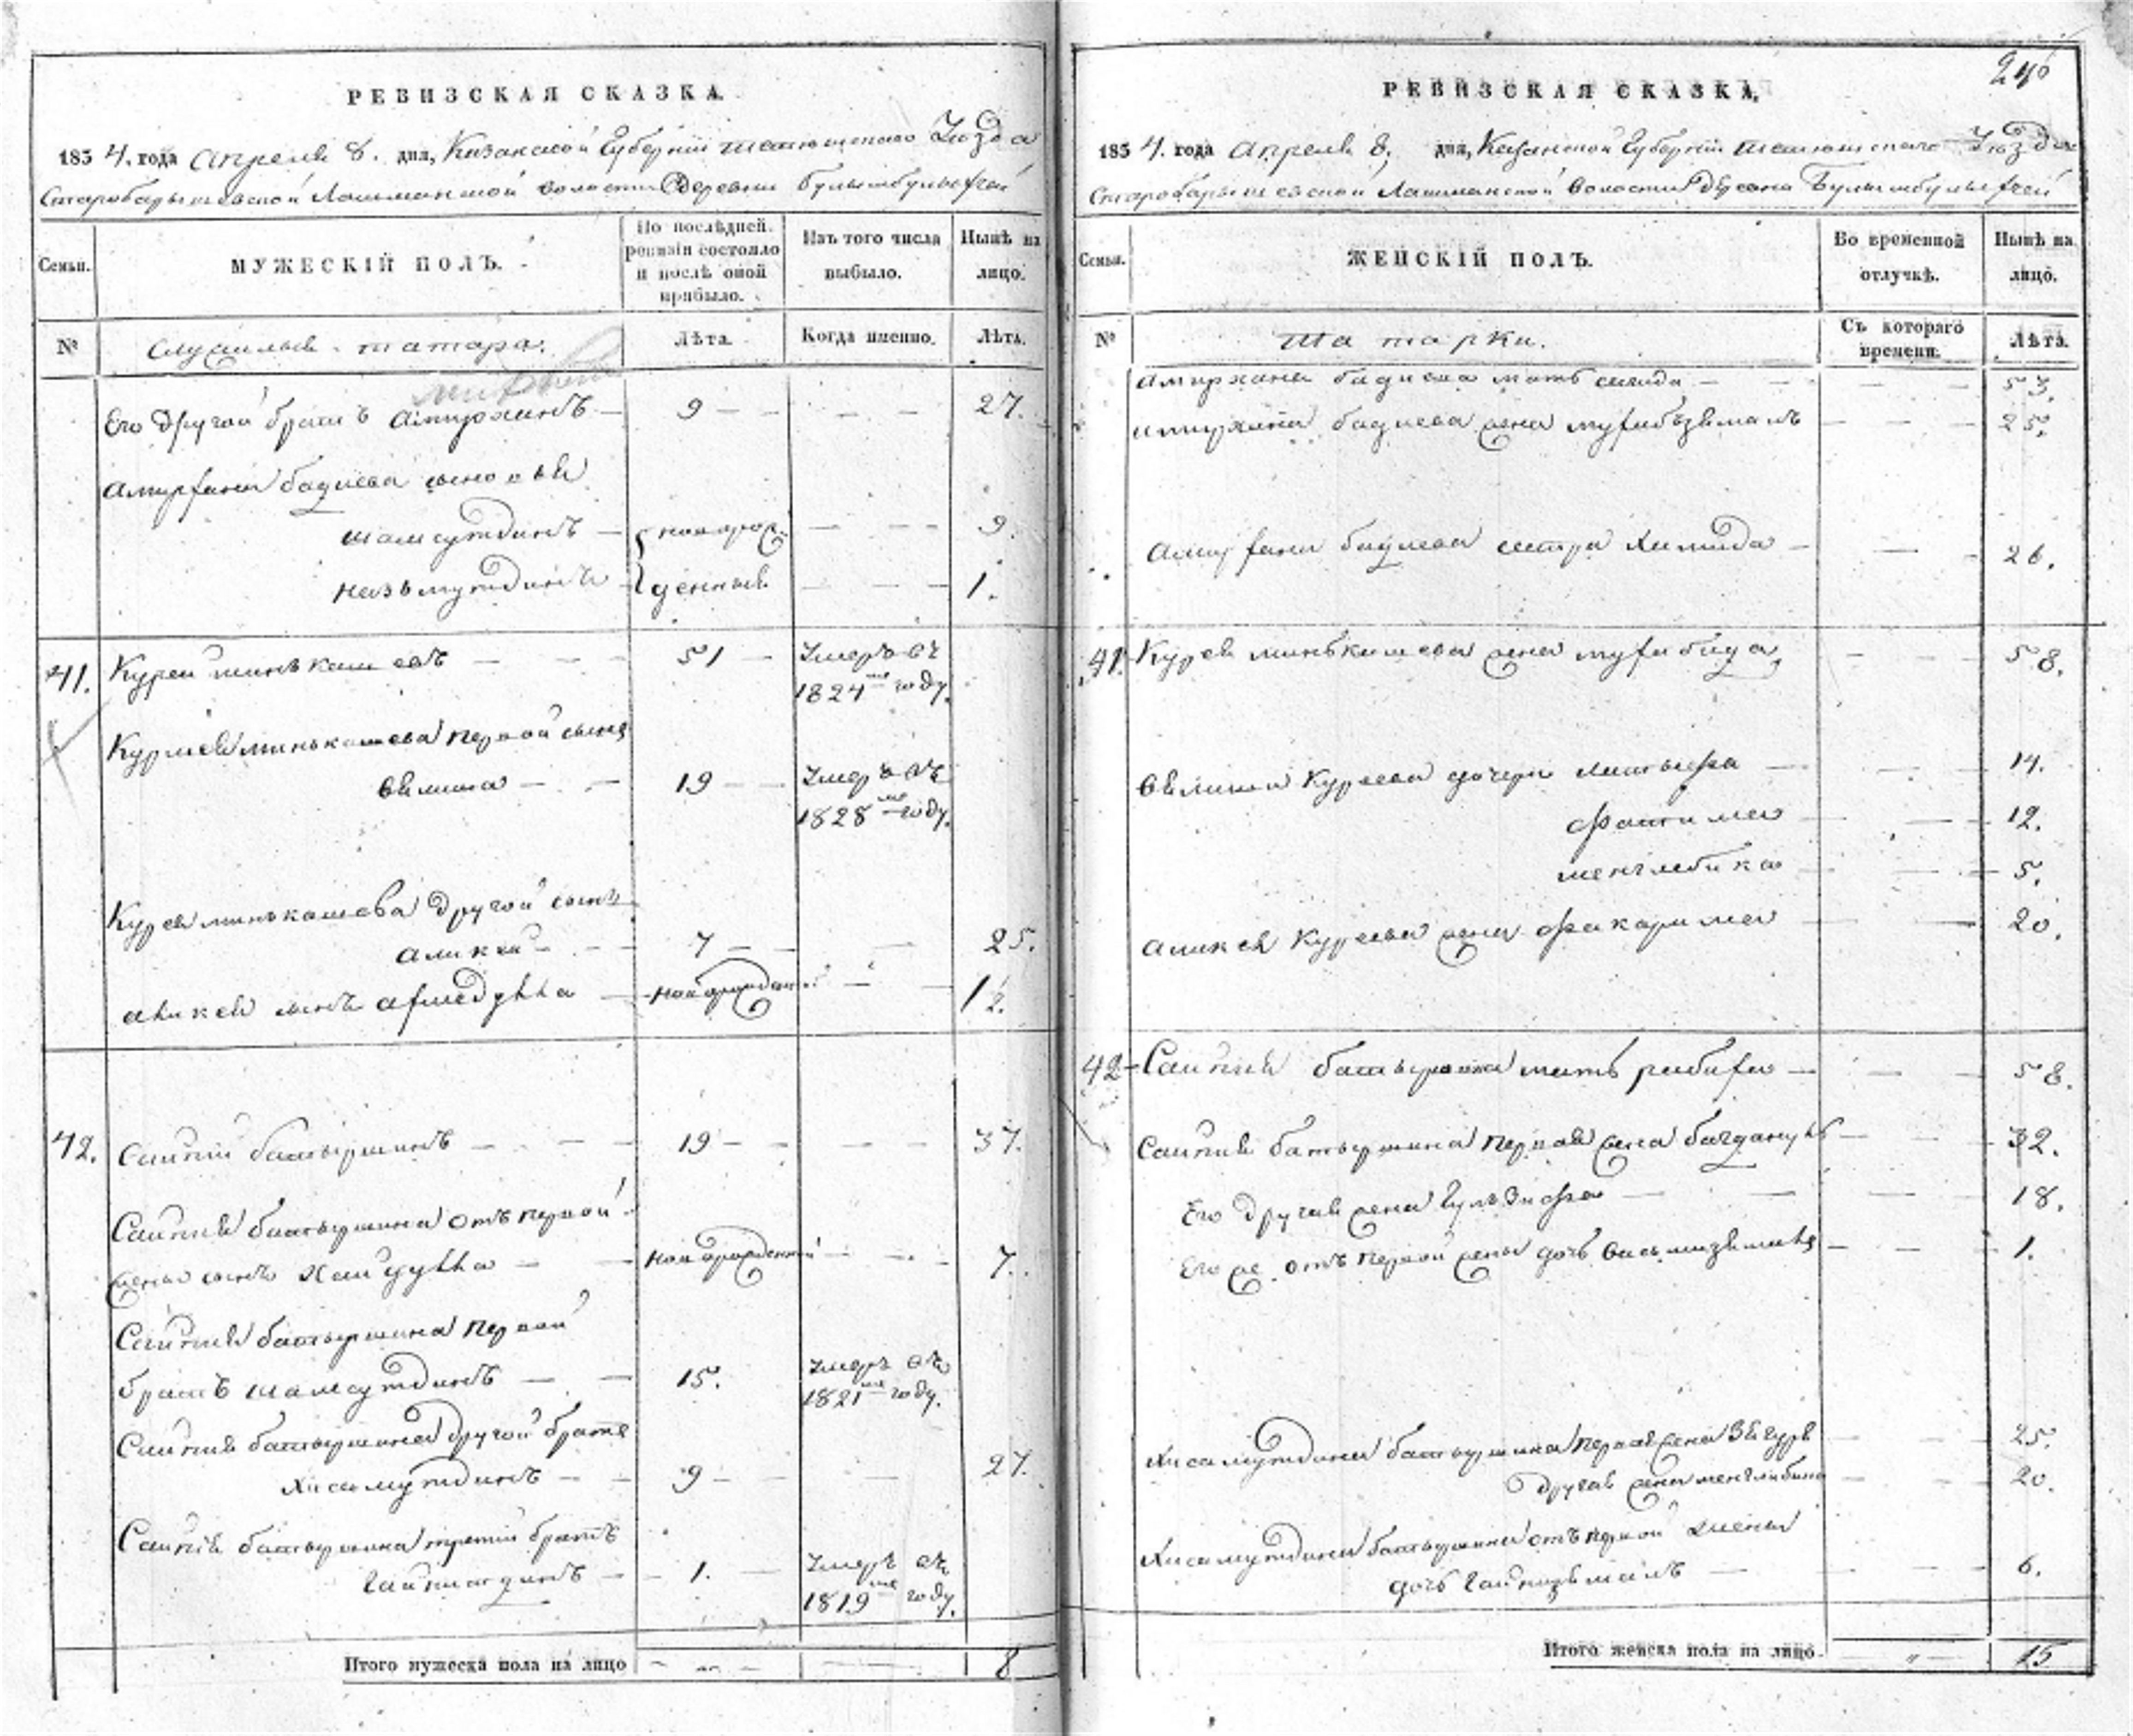 РЕВИЗСКАЯ СКАЗКА.
1834. года Апреля 8. дня, Казанской Губернии Тетюшского Уезда
Старобарышевской Лашманской волости Деревни
Семьи.
МУЖЕСКІЙ ПОЛЪ.
По послѣдней ревизіи состояло и послѣ оной прибыло.
Изъ того числа выбыло.
Нынѣ на лицо.
№
Служилыя татара.
Лѣта.
Когда именно.
Лѣта.
Его другой братъ Амирханъ 9 27.
Амирхана Бадиева сыновья
Шамсутдинъ новорож 9.
Назьмутдинъ денныя 1.
41. Курей Минькашевъ 51 Умеръ въ 1824мъ году.
Курмея Минькашева первой сынъ
Вилиша 19 Умеръ въ 1828мъ году.
Курея Минькашева другой сынъ
Аликей 7 25.
Аликея сынъ Ахмедулла новорожден. 1 1/2.
42. Саипій Батыршинъ 19 37.
Саипия Батыршина отъ первой
жены сынъ Хайдулла новорожденный 7.
Саипия Батыршина первой
братъ Шамсутдинъ 15. Умеръ въ 1821мъ году.
Саипия Батыршина другой братъ
Хисамутдинъ 9 27.
Саипия Батыршина третій братъ
Гайнитдинъ 1. Умеръ въ 1819мъ году.
Итого мужеска пола на лицо 8
246
РЕВИЗСКАЯ СКАЗКА.
1834. года Апреля 8. дня, Казанской Губернии Тетюшского Уезда
Старобарышевской Лашманской волости Деревни
Семьи.
ЖЕНСКІЙ ПОЛЪ.
Во временной отлучкѣ.
Нынѣ на лицо.
№
Татарки.
Съ котораго времени.
Лѣта.
Амирхана Бадиева мать 53.
Амирхана Бадиева жена 25.
Амирхана Бадиева сестра Хамида 26.
41. Курея Минькашева жена 58.
Вилиши Куреева дочери 14.
Фатима 12.
Менглебика 5.
Аликея Куреева жена 20.
42 Саипия Батыршина мать 58.
Саипия Батыршина первая жена 32.
Его другая жена Гульзифа 18.
Его же отъ первой жены дочь 1.
Хисамутдина Батыршина первая жена 25.
другая жена 20.
Хисамутдина Батыршина отъ первой жены
дочь 6.
Итого женска пола на лицо. 15